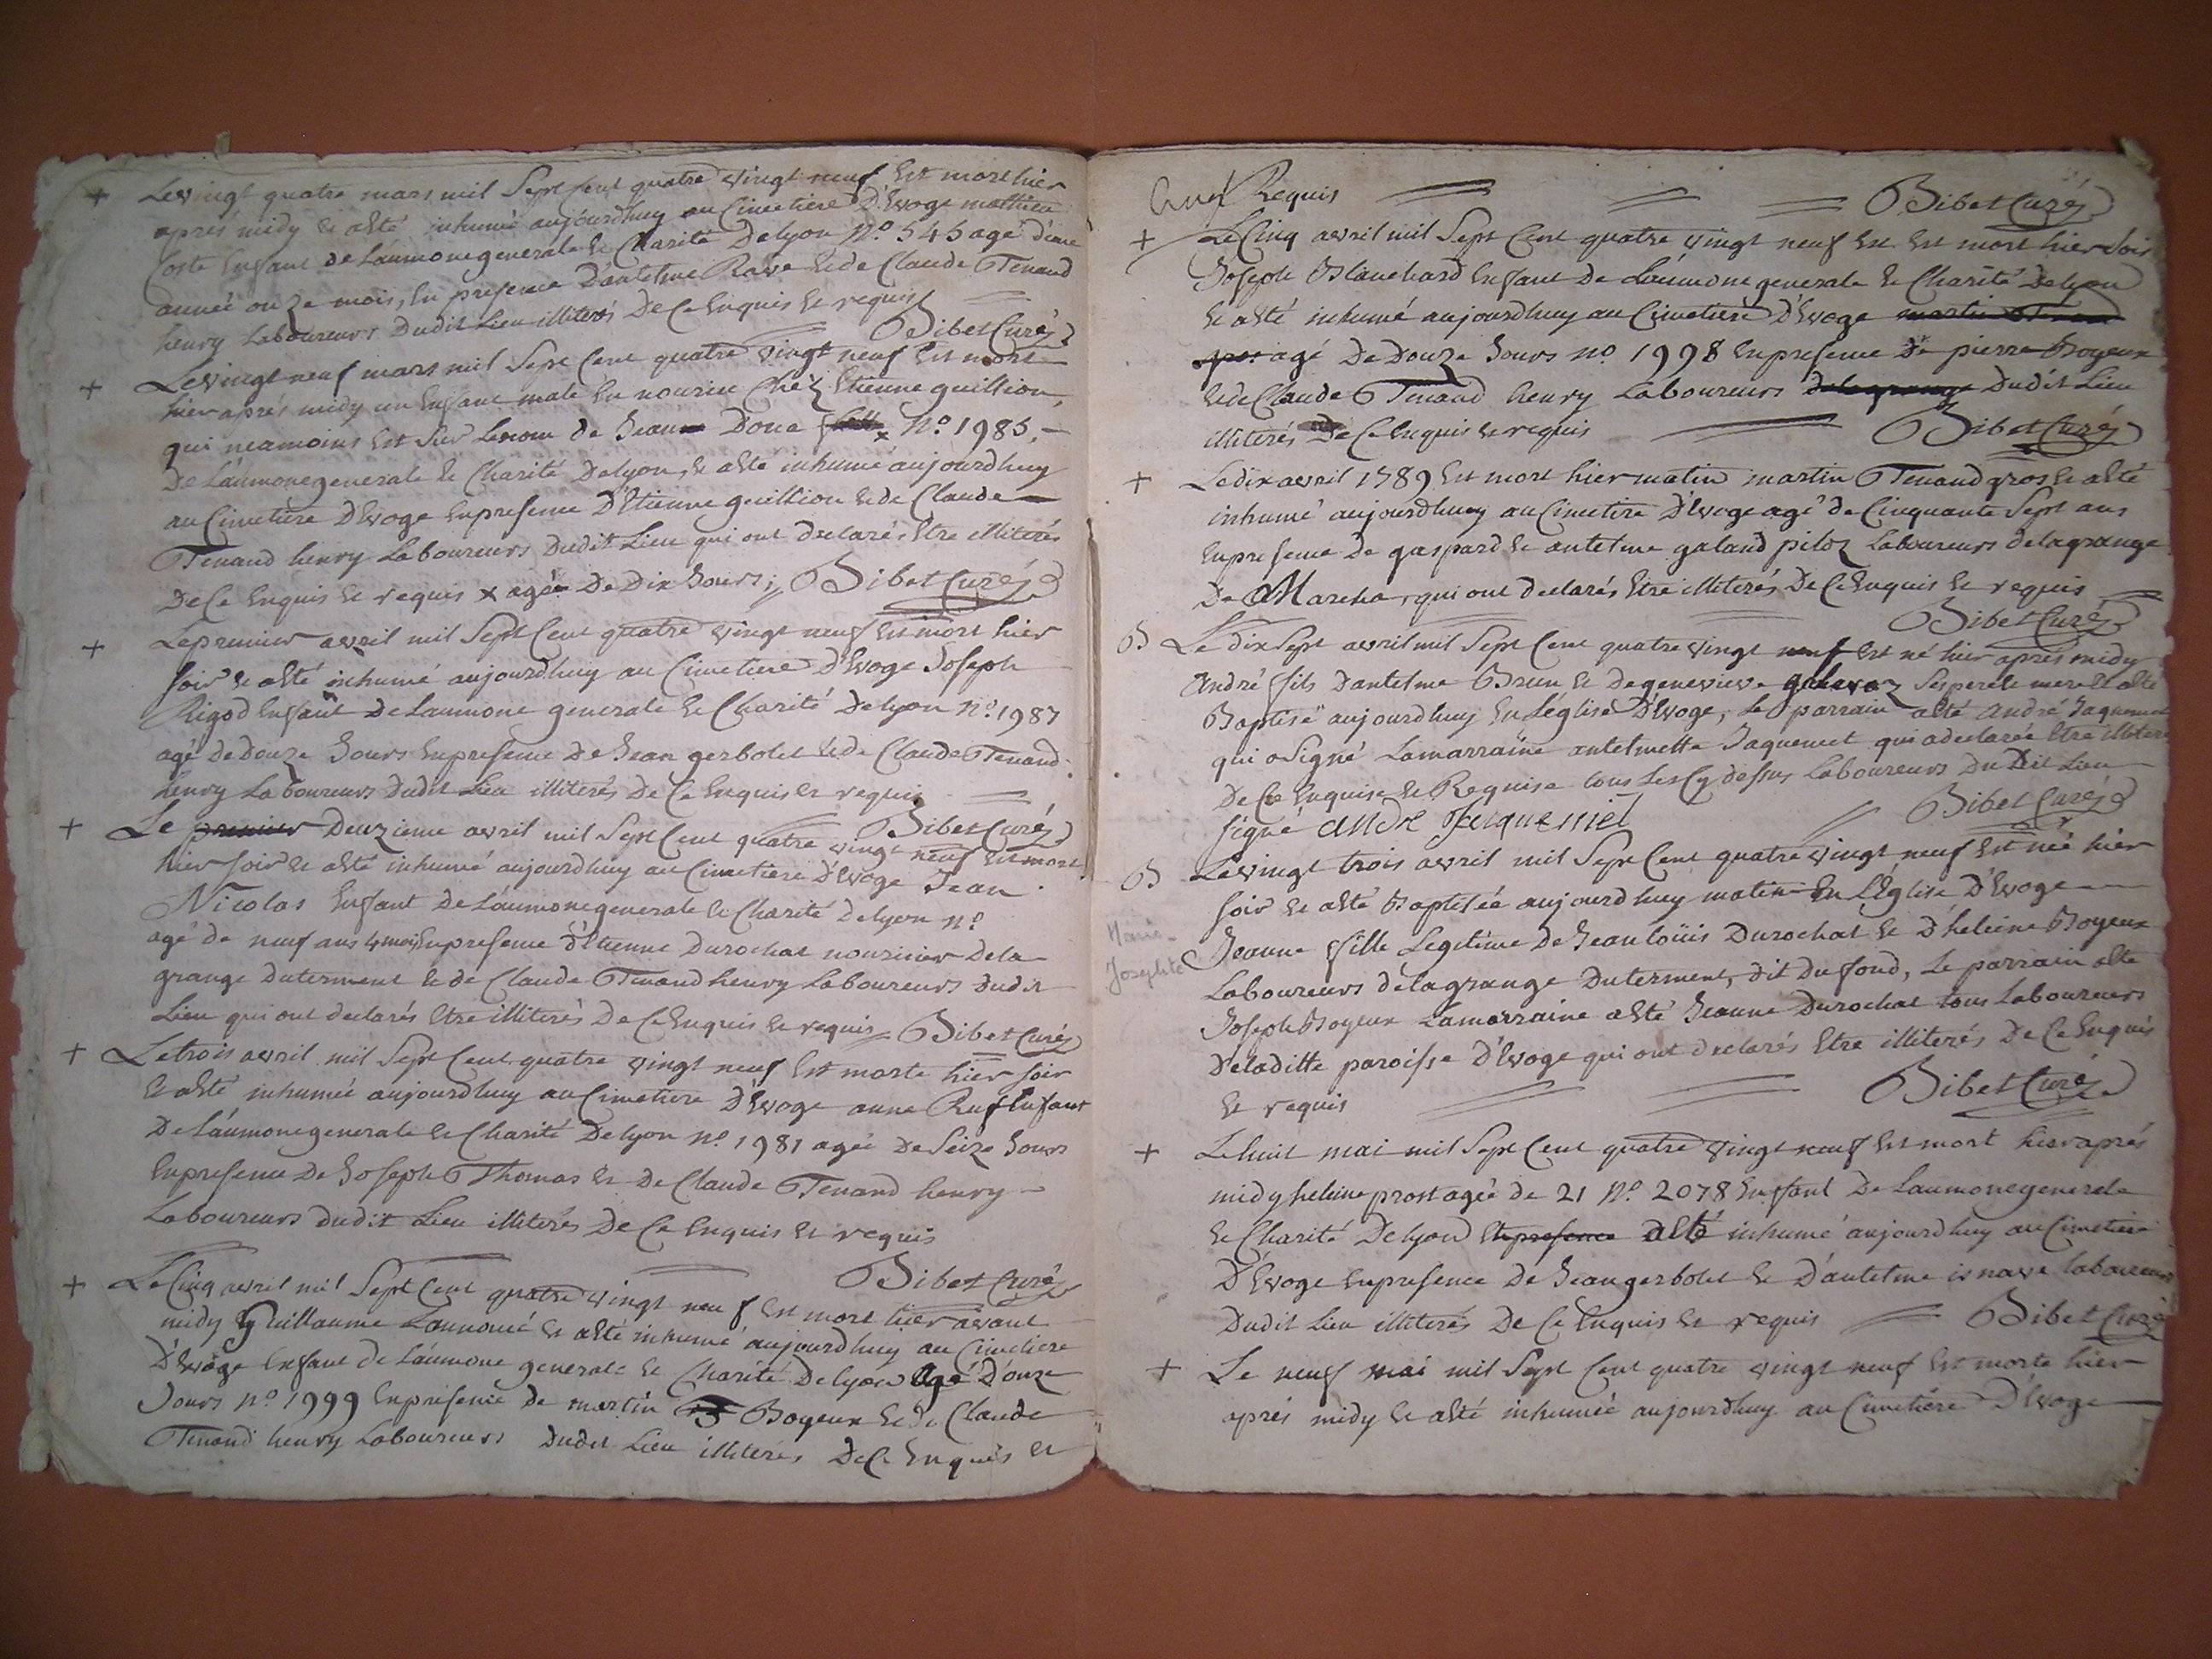 + Le vingt quatre mars mil Sept Cent quatre vingt neuf Est mort hier
aprés midy Et a Eté inhumé aujourdhuy au Cimetiere D'Evoge mathieu
Coste Enfant de L'aumone generale Et Charité De lyon N.o 545 agé d'une
année onze mois, En presence D'antelme Rave Et de Claude Tenand
henry Laboureurs Dudit Lieu illiterés De Ce Enquis Et requis
Bibet Curé
+ Le vingt neuf mars mil Sept Cent quatre vingt neuf Est mort
hier aprés midy un Enfant male En nourice Chéz Etienne guillion,
qui neamoins Est Sur Le nom de Jean Doue N.o 1985,
De L'aumone generale Et Charité De lyon, Et a Eté inhumé aujourdhuy
au Cimetiere D'Evoge En presence D'Etienne guillion Et de Claude
Tenand henry Laboureurs Dudit Lieu qui ont declarés Etre illiterés
De Ce Enquis Et requis x agé De Dix Jours; Bibet Curé
+ Le premier avril mil Sept Cent quatre vingt neuf Est mort hier
soir Et a Eté inhumé aujourdhuy au Cimetiere D'Evoge Joseph
Rigod Enfant De Laumone generale Et Charité De lyon N.o 1987
agé De Douze Jours En presence De Jean gerbolet Et de Claude Tenand
henry Laboureurs Dudit Lieu illiterés De Ce Enquis Et requis
Bibet Curé
+ Le premier Deuzieme avril mil Sept Cent quatre vingt neuf Est mort
hier soir Et a Eté inhumé aujourdhuy au Cimetiere D'Evoge Jean
Nicolas Enfant De L'aumone generale Et Charité De lyon N.o
agé de neuf ans 4 mois En presence d'Etienne Durochat nouricier De la
grange Duterment Et de Claude Tenand henry Laboureurs Dudit
Lieu qui ont declarés Etre illiterés De Ce Enquis Et requis Bibet Curé
+ Le trois avril mil Sept Cent quatre vingt neuf Est morte hier soir
Et a Eté inhumée aujourdhuy au Cimetiere D'Evoge anne Ruf Enfant
De L'aumone generale Et Charité De lyon N.o 1981 agée De Seize Jours
En presence De Joseph Thomas Et De Claude Tenand henry
Laboureurs dudit Lieu illiterés De Ce Enquis Et requis
Bibet Curé
+ Le Cinq avril mil Sept Cent quatre vingt neuf Est mort hier avant
midy Guillaume Et a Eté inhumé aujourdhuy au Cimetiere
D'Evoge Enfant de L'aumone generale Et Charité De lyon agé D'onze
Jours n.o 1999 En presence de martin Boyeux Et de Claude
Tenand henry Laboureurs Dudit Lieu illiterés De Ce Enquis Et
Requis Bibet Curé
+ Le Cinq avril mil Sept Cent quatre vingt neuf Est Est mort hier Soir
Joseph Blanchard Enfant De L'aumone generale Et Charité De lyon
Et a Eté inhumé aujourdhuy au Cimetiere D'Evoge
agé De Douze Jours n.o 1998 En presence De pierre Boyeux
Et de Claude Tenand henry Laboureurs Dudit Lieu
illiterés De Ce Enquis Et requis Bibet Curé
+ Le dix avril 1789 Est mort hier matin martin Tenand gros Et a Eté
inhumé aujourdhuy au Cimetiere D'Evoge agé de Cinquante Sept ans
En presence De gaspard Et antelme galand piloz Laboureurs de la grange
De Marcha, qui ont declarés Etre illiterés De Ce Enquis Et requis
Bibet Curé
B Le dix Sept avril mil Sept Cent quatre vingt neuf Est né hier aprés midy
André fils Dantelme Brun Et De genevieve Ses pere Et mere Et a Eté
Baptisé aujourdhuy En L'église D'Evoge, Le parrain a Eté André Jaquemet
qui a Signé La marraine antelmette Jaquemet qui a declarée Etre illiterée
De Ce Enquise Et Requise tous Les Cy dessus Laboureurs Du Dit Lieu
signé André Jaquemet Bibet Curé
B Le vingt trois avril mil Sept Cent quatre vingt neuf Est née hier
soir Et a Eté Baptisée aujourd'huy matin En L'Église D'Evoge
Marie-
Josephte
Jeanne fille Legitime De Jean loüis Durochat Et D'heleine Boyeux
Laboureurs de la grange Duterment, dit Du fond, Le parrain a Eté
Joseph Boyeux La marraine a Eté Jeanne Durochat tous Laboureurs
De laditte paroisse D'Evoge qui ont declarés Etre illiterés De Ce Enquis
Et requis Bibet Curé
+ Le huit mai mil Sept Cent quatre vingt neuf Est mort hier aprés
midy heleine prost agée de 21 N.o 2078 Enfant De Laumone generale
Et Charité De lyon En presence a Eté inhumé aujourd huy au Cimetiere
D'Evoge En presence De Jean gerbolet Et D'antelme laboureurs
Dudit Lieu illiterés De Ce Enquis Et requis Bibet Curé
+ Le neuf mai mil Sept Cent quatre vingt neuf Est morte hier
aprés midy Et a Eté inhumée aujourdhuy au Cimetiére D'Evoge